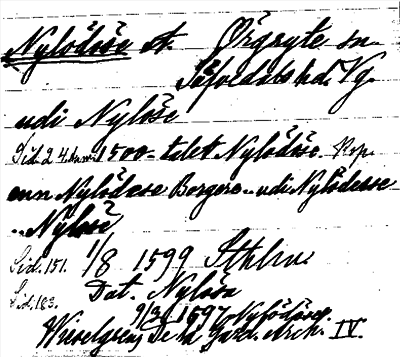 Nylödöse st. Örgryte sn.
Säfvedals hd. Vg.
udi Nylöse
Sid. 2 4. Anm. 1500-talet Nylödöse. Rep.
ann Nylödose Borgere.. udi Nylödesse
.. Nylösě
Sid. 151. 1/8 1599 Sthlm.
Sid. 183. Dat. Nylösa
9/3 1597 Nylödöse
Wieselgren De la Gard. Arch. IV.